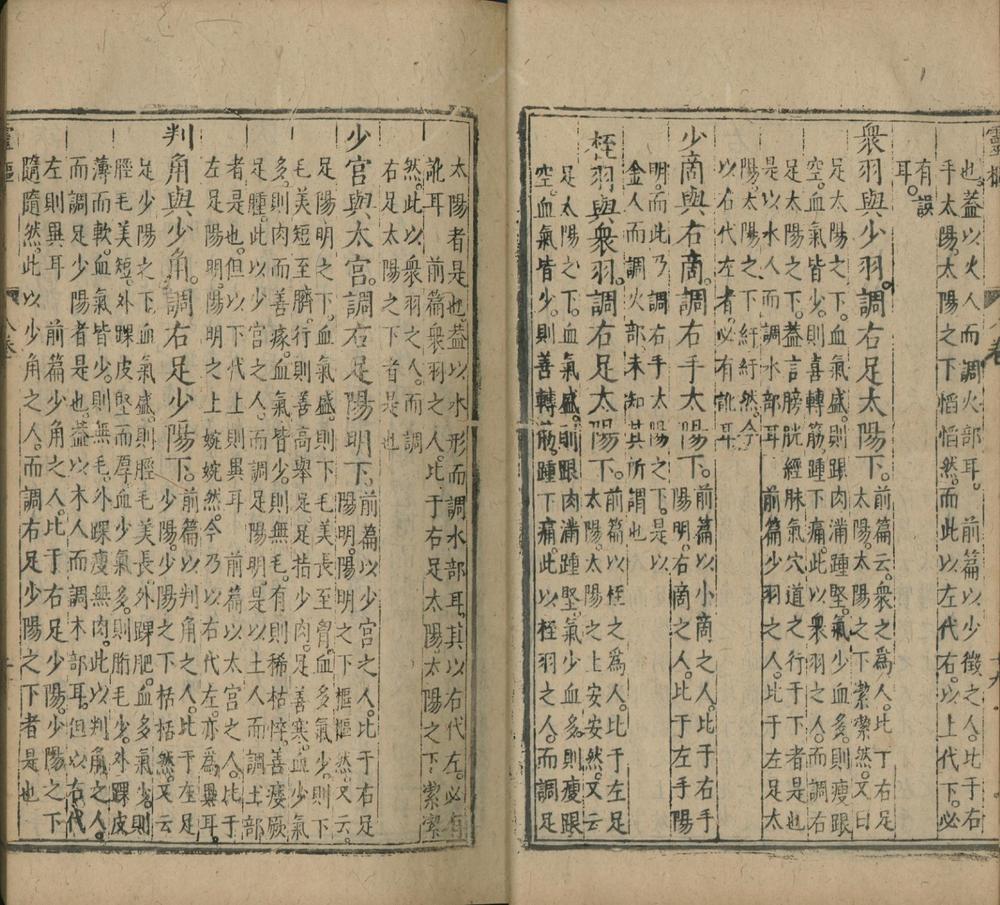 靈樞
也蓋以火人而調火部耳 前篇以少徵之人比于右
手太陽太陽之下慆慆然而此以左代右以上代下必
有誤
耳
衆羽與少羽調右足太陽下前篇云衆之爲人比丁右足
太陽太陽之下潔潔然又曰
足太陽之下血氣盛則跟肉滿踵堅氣少血多則瘦跟
空血氣皆少則喜轉筋踵下痛此以衆羽之人而調右
足太陽之下蓋言膀胱經脉氣穴道之行于下者是也
是以水人而調水部耳 前篇少羽之人比于左足太
陽太陽之下紆紆然今
以右代左者必有訛耳
少商與右商調右手太陽下前篇以小商之人比于右手
陽明右商之人比于左手陽
明而此乃調右手太陽之下是以
金人而調火部未知其所謂也
桎羽與衆羽調右足太陽下前篇以桎之爲人比于左足
太陽太陽之上安安然又云
足太陽之下血氣盛則跟肉滿踵堅氣少血多則瘦跟
空血氣皆少則善轉筋踵下痛此以桎羽之人而調足
太陽者是也蓋以水形而調水部耳其以右代左必有
訛耳 前篇衆羽之人比于右足太陽太陽之下潔潔
然此以衆羽之人而調
右足太陽之下者是也
少宫與太宫調右足陽明下前篇以少宫之人比于右足
陽明陽明之下樞樞然又云
足陽明之下血氣盛則下毛美長至胷血多氣少則下
毛美短至臍行則善高舉足足指少肉足善寒血少氣
多則肉而善瘃血氣皆少則無毛有則稀枯悴善痿厥
足腫此以少宫之人而調足陽明是以土人而調土部
者是也但以下代上則異耳 前篇以太宫之人比于
左足陽明陽明之上婉婉然今乃以右代左亦爲異耳
判角與少角調右足少陽下前篇以判角之人比于左足
少陽少陽之下栝栝然又云
足少陽之下血氣盛則脛毛美長外踝肥血多氣少則
脛毛美短外踝皮堅而厚血少氣多則胻毛少外踝皮
薄而軟血氣皆少則無毛外踝瘦無肉此以判角之人
而調足少陽者是也蓋以木人而調木部耳但以右代
左則異耳 前篇少角之人比于右足少陽少陽之下
隨隨然此以少角之人而調右足少陽之下者是也